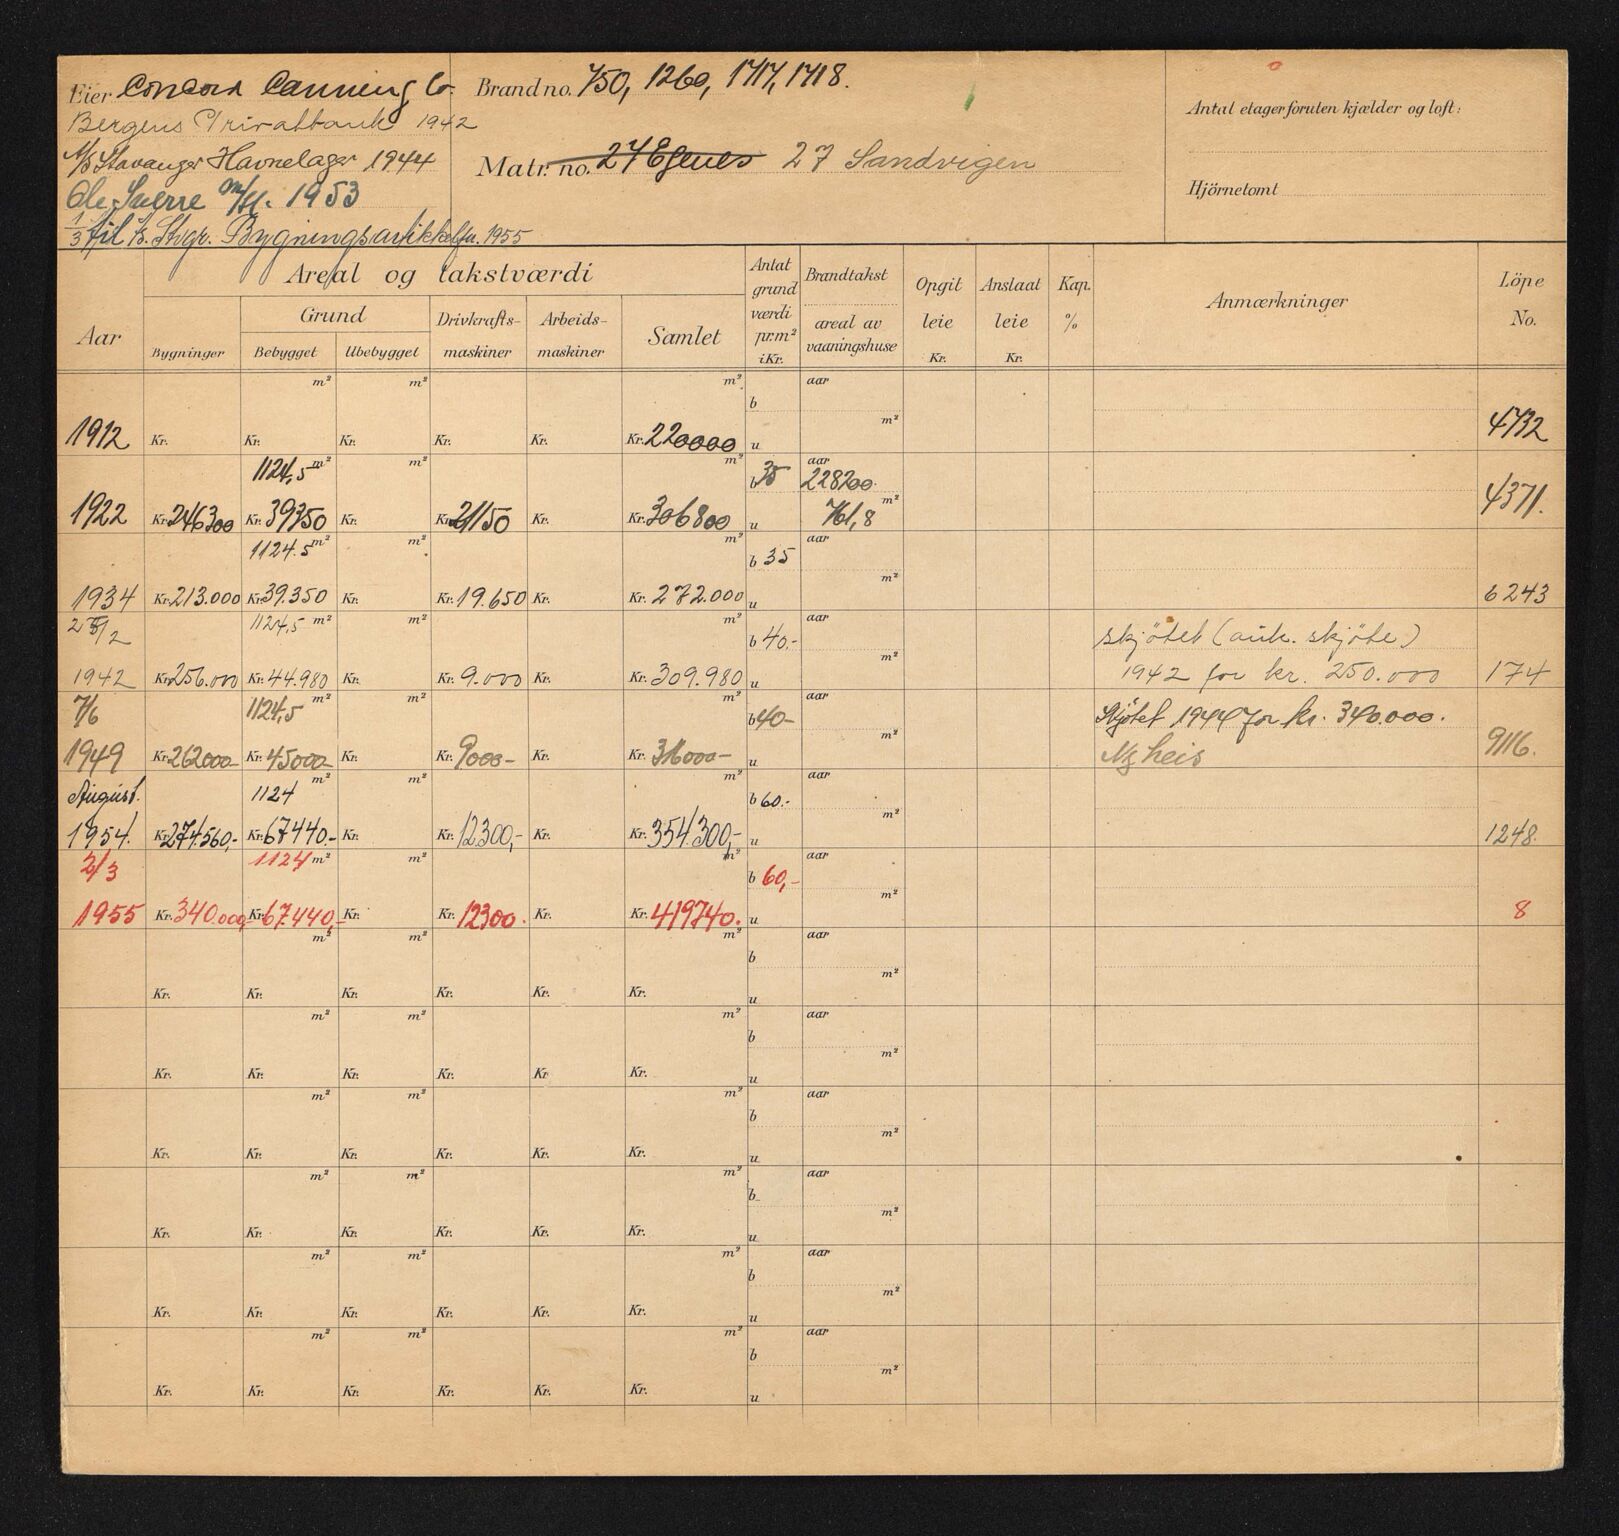 Eier Concord Canning Co. Brand no. 750, 1260, 1717, 1718.
Bergens Privatbank 1942
A/S Stavanger Havnelager 1944
Matr. no. 27 Egenes 27 Sandvigen
Ole Sverre 1953
1/3 til Stvgr. 1955
Antal etager foruten kjælder og loft:
Hjörnetomt
Aar
Areal og takstværdi
Bygninger
Grund
Bebygget Ubebygget
Drivkrafts-maskiner
Arbeids-maskiner
Samlet
Antat grund værdi pr. m² i Kr.
Brandtakst
areal av vaaningshuse
Opgit leie Kr.
Anslaat leie Kr.
Kap. %
Anmærkninger
Löpe No.
m² m² m² b aar
1912 Kr. Kr. Kr. Kr. Kr. Kr. 220000 u m² 4732
1124,5 m² m² m² b 35 aar 228200
1922 Kr. 246300 Kr. 39350 Kr. Kr. 21150 Kr. Kr. 306800 u 761,8 m² 4371.
1124.5 m² m² m² b 35 aar
1934 Kr. 213.000 Kr. 39.350 Kr. Kr. 19.650 Kr. Kr. 272.000 u m² 6243
1124,5 m² m² m² b 40.- aar skjötet (auk. skjöte)
1942 Kr. 256.000 Kr. 44.980 Kr. Kr. 9.000 Kr. Kr. 309.980 u m² 1942 for kr. 250.000 174
7/6 1124,5 m² m² m² b 40- aar Skjötet 1944 for kr. 340.000.
1949 Kr. 262000- Kr. 45000- Kr. Kr. 9000- Kr. Kr. u m² Ny heis 9116.
August. 1124 m² m² m² b 60.- aar
1954. Kr. 274.560,- Kr. 67440.- Kr. Kr. 12300,- Kr. Kr. 354.300,- u m² 1248.
2/3 1124 m² m² m² b 60,- aar
1955 Kr. 340.000,- Kr. 67.440,- Kr. Kr. 12300. Kr. Kr. 419740. u m² 8
m² m² m² b aar
Kr. Kr. Kr. Kr. Kr. Kr. u m²
m² m² m² b aar
Kr. Kr. Kr. Kr. Kr. Kr. u m²
m² m² m² b aar
Kr. Kr. Kr. Kr. Kr. Kr. u m²
m² m² m² b aar
Kr. Kr. Kr. Kr. Kr. Kr. u m²
m² m² m² b aar
Kr. Kr. Kr. Kr. Kr. Kr. u m²
m² m² m² b aar
Kr. Kr. Kr. Kr. Kr. Kr. u m²